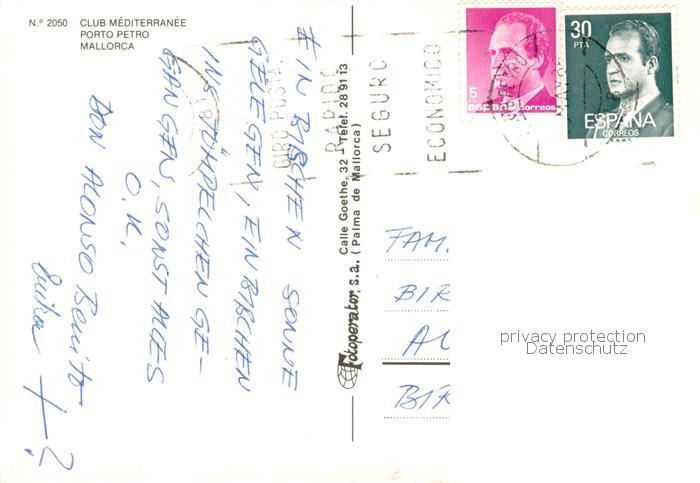 N.º 2050 CLUB MÉDITERRANÉE
PORTO PETRO
MALLORCA
EIN BISCHEN SONNE
GELEGEN, EIN BISCHEN
INS TÜMPELCHEN GE-
GANGEN, SONST ALLES
O.K.
DON ALONSO Benito
+ ?
GIRO POSTAL
RAPIDO
SEGURO
ECONOMICO
Fotoperator, s.a. Calle Goethe, 32 Telef. 28 91 13
(Palma de Mallorca)
5
españa correos
30
PTA
ESPAÑA
CORREOS
F.N.M.T.
FAM.
BIR
AU
BIR
privacy protection
Datenschutz